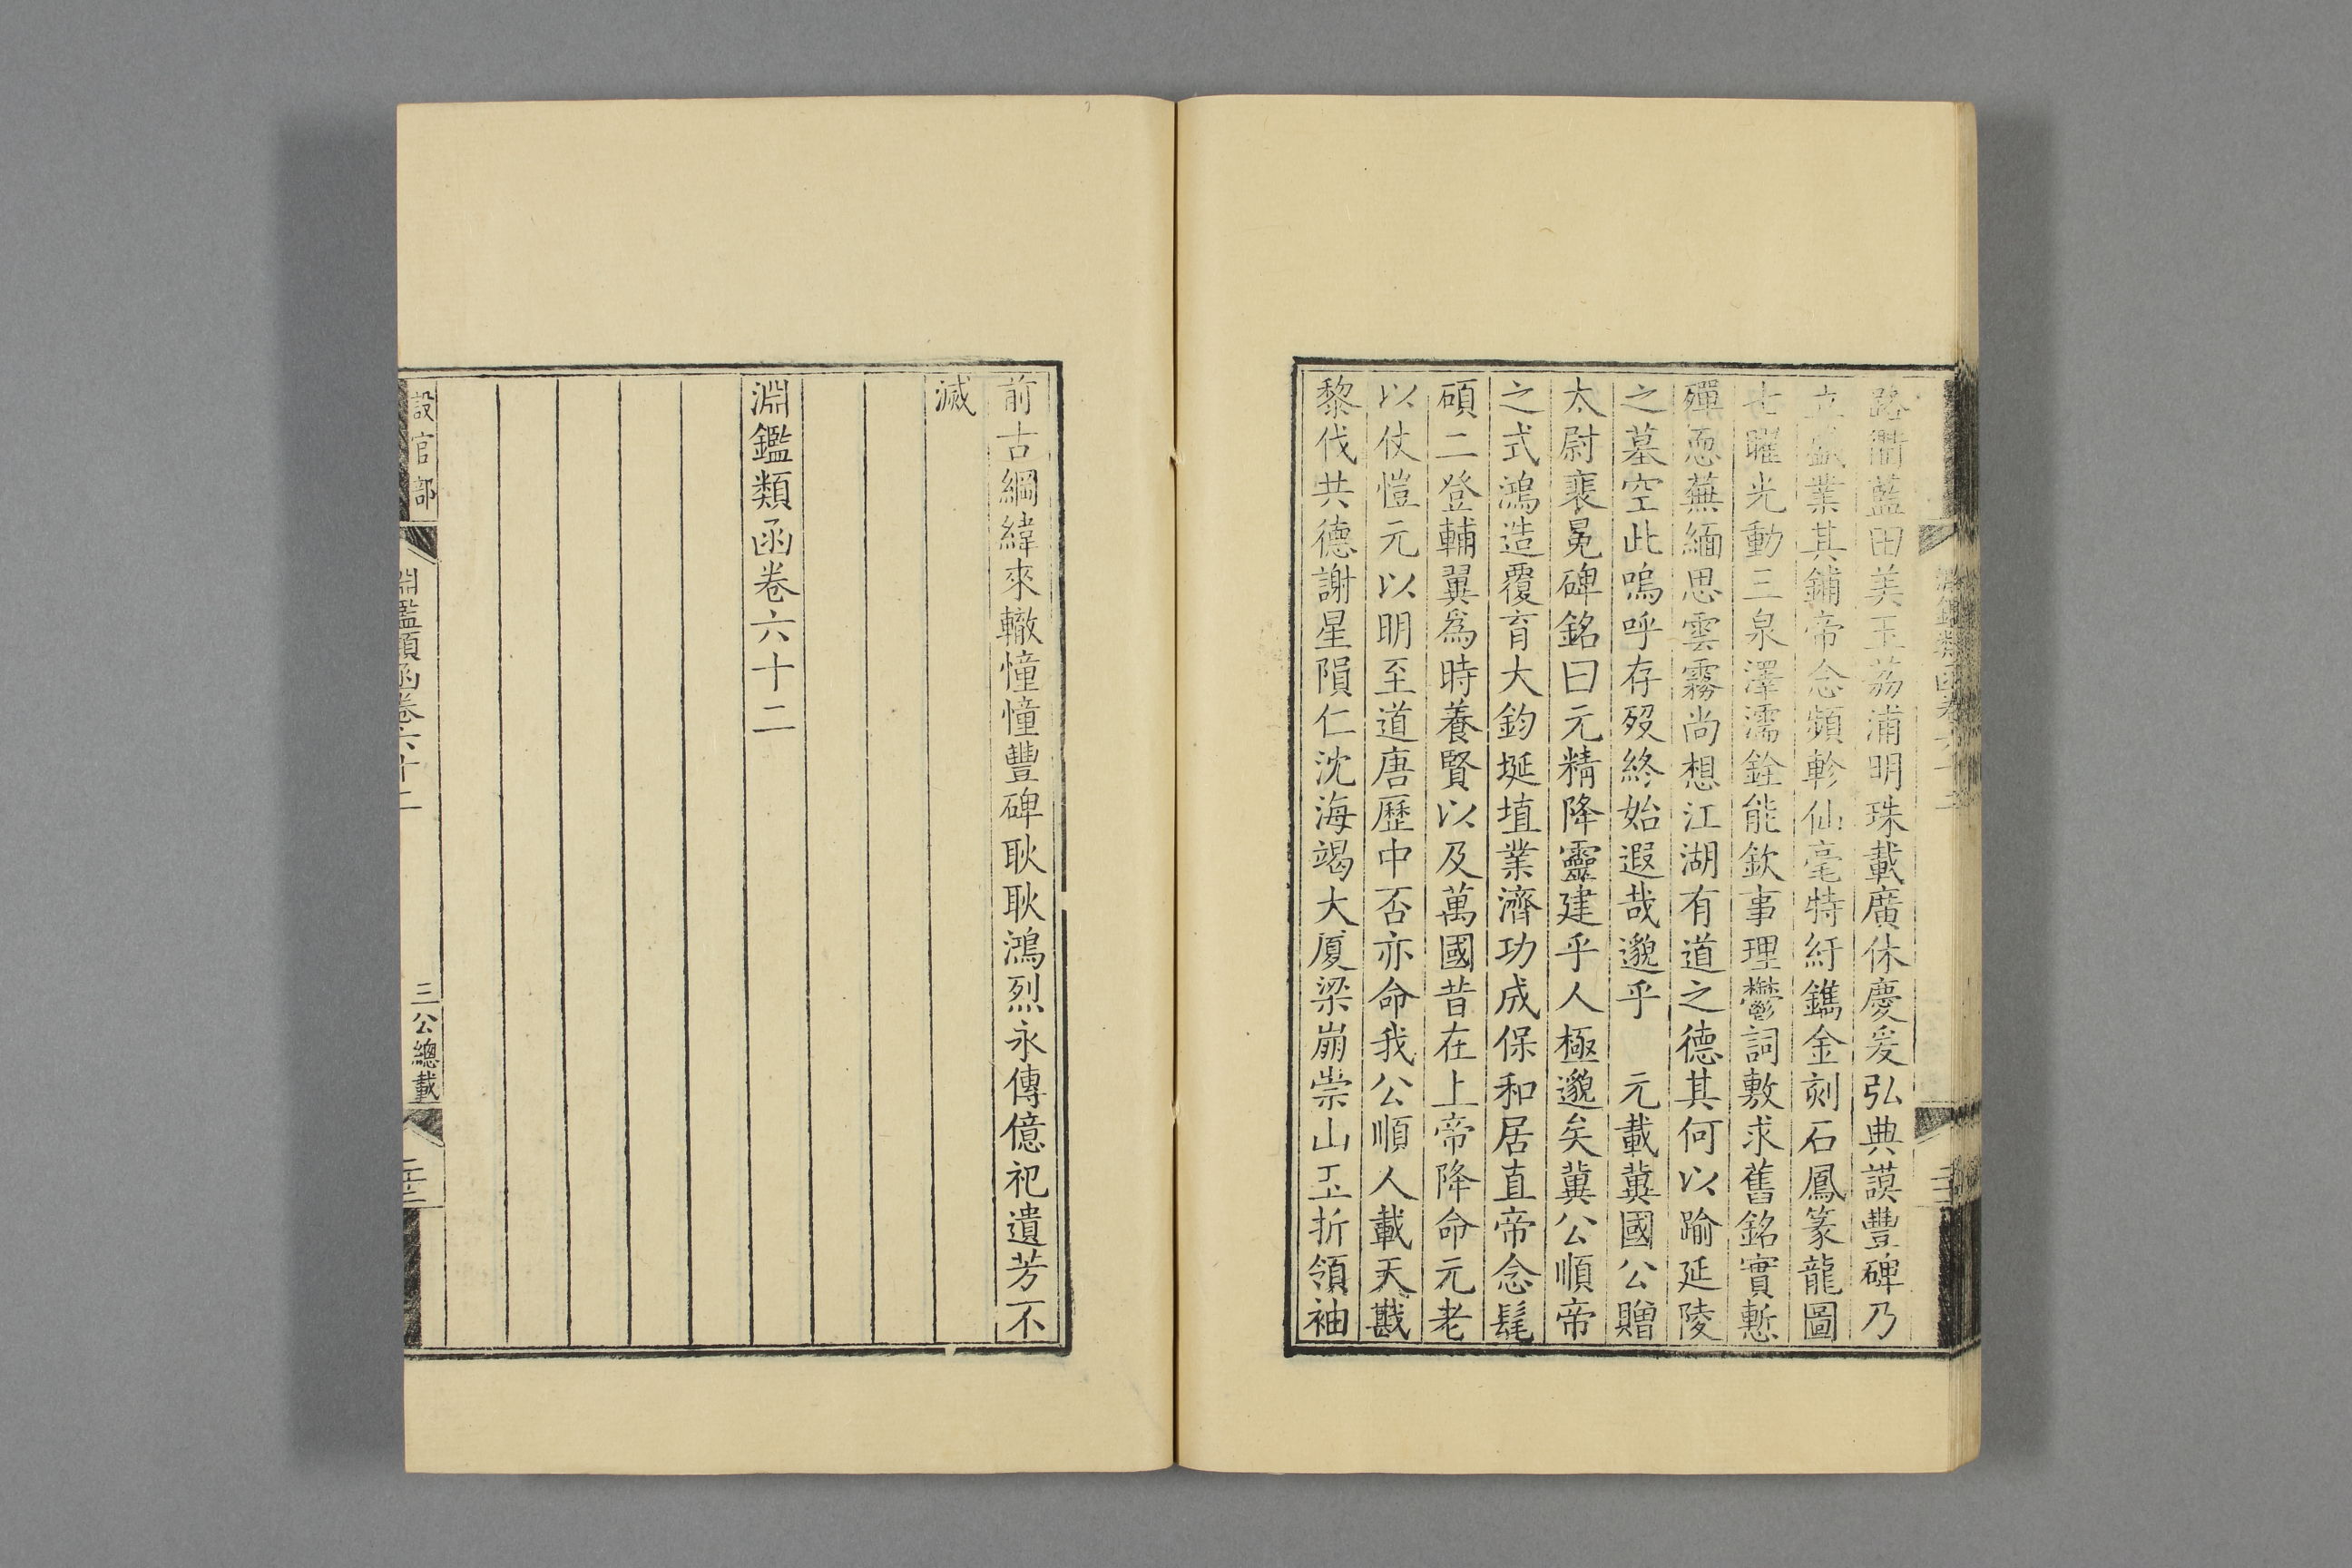 路衢藍田美玉荔浦明珠載廣休慶爰弘典謨豐碑乃
立盛業其鋪帝念頻軫仙毫特紆鐫金刻石鳳篆龍圖
七曜光動三泉澤濡銓能欽事理鬱詞敷求舊銘實慙
殫恧蕪緬思雲霧尚想江湖有道之德其何以踰延陵
之墓空此嗚呼存歿終始遐哉邈乎　元載冀國公贈
太尉裴冕碑銘曰元精降靈建乎人極邈矣冀公順帝
之式鴻造覆育大鈞埏埴業濟功成保和居直帝念髦
碩二登輔翼爲時養賢以及萬國昔在上帝降命元老
以仗愷元以明至道唐歷中否亦命我公順人載天戡
黎伐共德謝星隕仁沈海竭大厦梁崩崇山玉折領袖
前古綱緯來轍憧憧豐碑耿耿鴻烈永傳億祀遺芳不
滅
淵鑑類函卷六十二
設官部
淵鑑類函卷六十二
三公總載